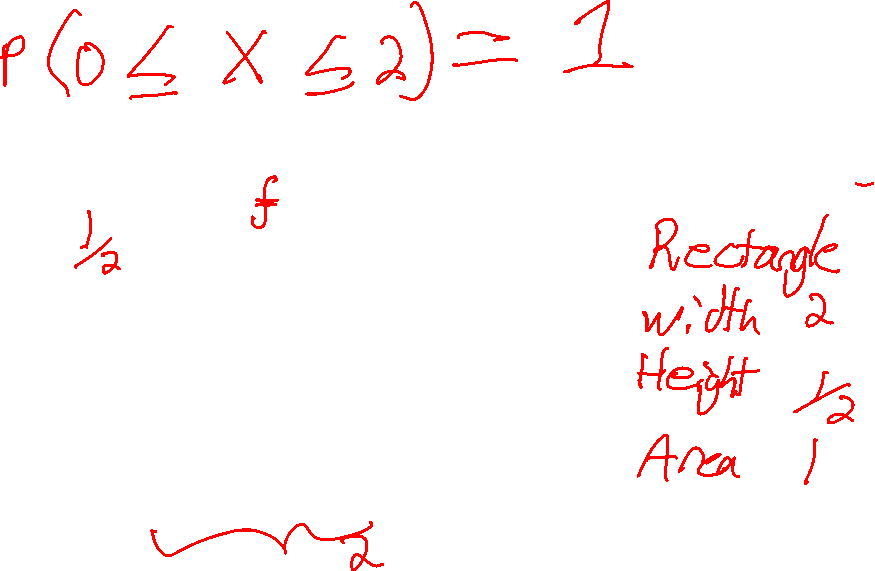 P(0 ≤ X ≤ 2) = 1
f
1/2
Rectangle
width 2
Height 1/2
Area 1
2